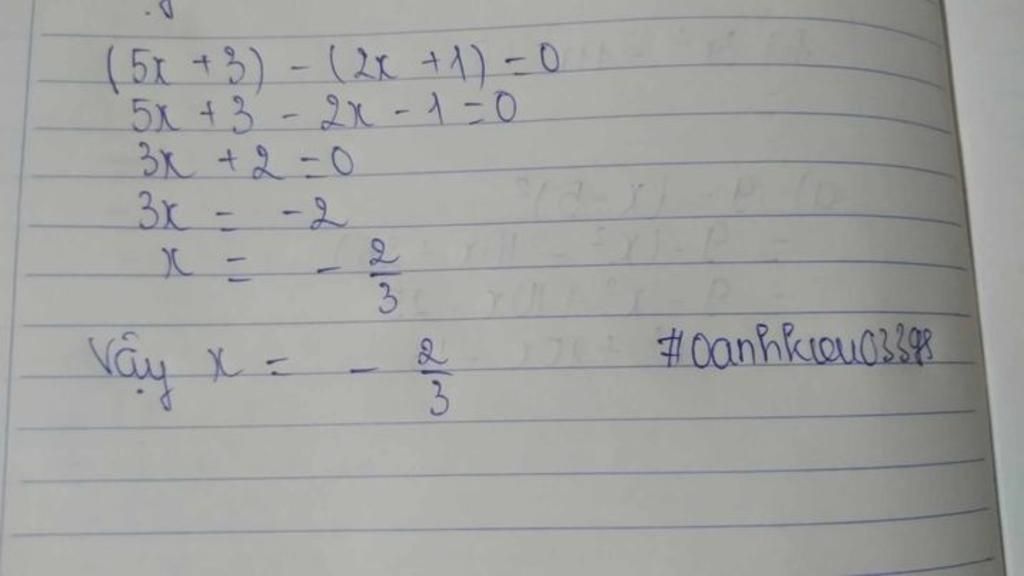 (5x + 3) - (2x + 1) = 0
5x + 3 - 2x - 1 = 0
3x + 2 = 0
3x = -2
x = - 2/3
Vậy x = - 2/3
#oanhkieu03398